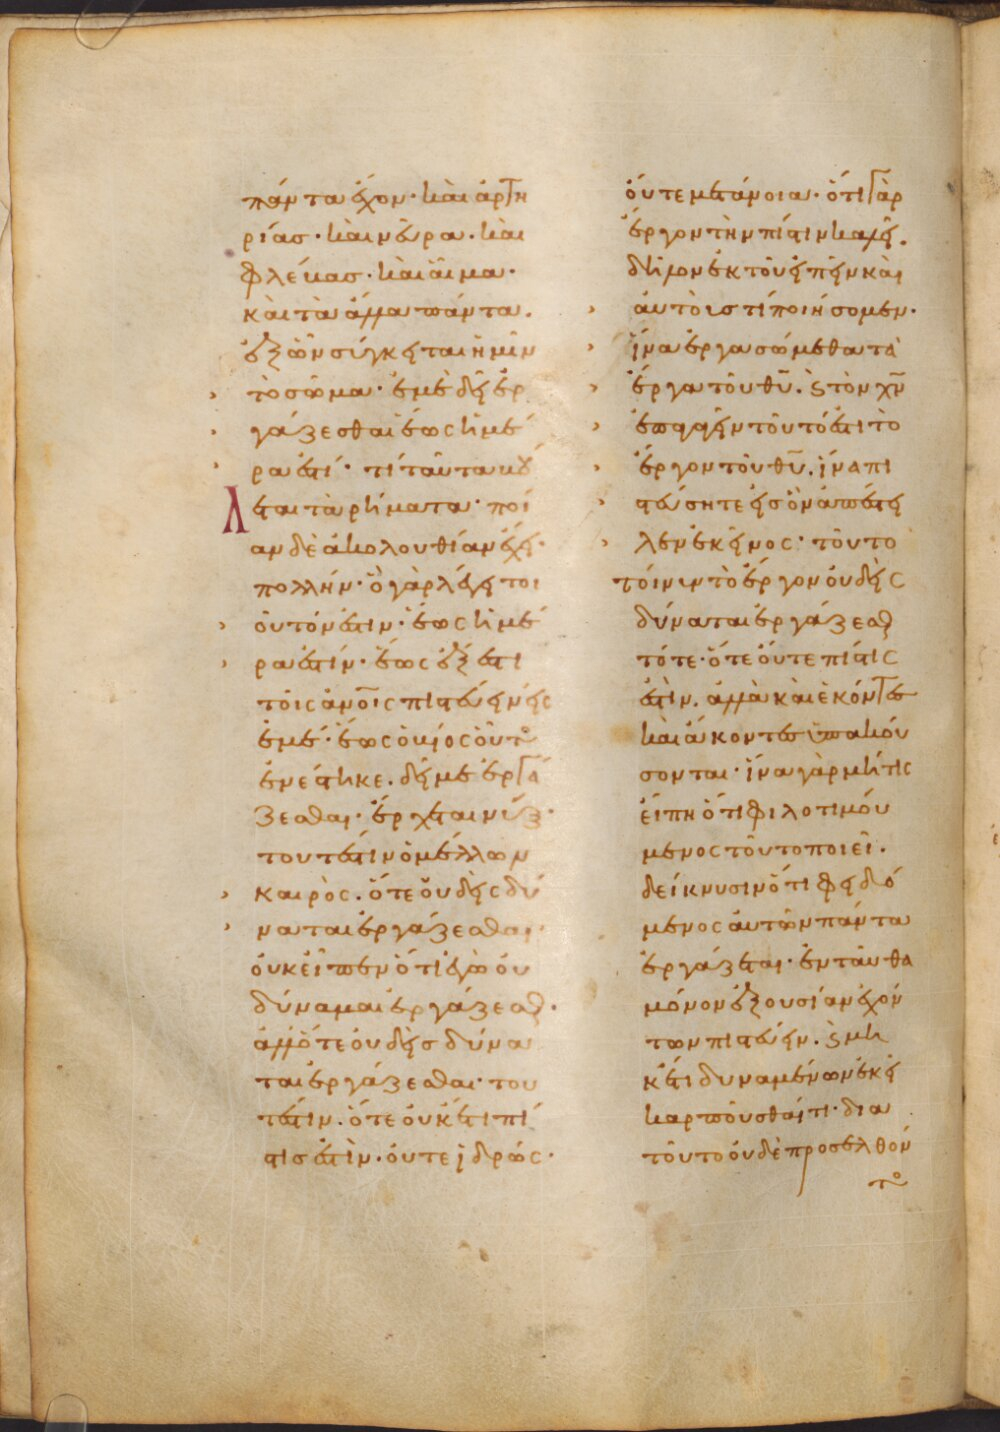 πάντα έχον· καὶ ἀρτη
ρίας· καὶ νεῦρα· καὶ
φλέβας· καὶ αἷμα·
καὶ τὰ ἄλλα πάντα.
ἐξ ὧν σύγκειται ἡμῖν
τὸ σῶμα· ἐμὲ δεῖ ἐρ
γάζεσθαι ἕως ἡμέ
ρα ἐστί· τί ταῦτα βού
λεται τὰ ρήματα· ποί
αν δὲ ἀκολουθίαν ἔχει·
πολλήν· ὃ γὰρ λέγει τοι
οῦτόν ἐστιν· ἕως ἡμέ
ρα ἐστίν· ἕως ἔξεστι
τοῖς ἀνοις πιστεύειν εἰς
ἐμέ· ἕως ὁ βίος οὗτο
ἐνέστηκε. δεῖ με ἐργά
ζεσθαι· ἔρχεται νύξ·
τουτέστιν ὁ μέλλων
καιρὸς. ὅτε οὐδεὶς δύ
ναται ἐργάζεσθαι·
οὐκ εἶπεν ὅτι ἐγὼ οὐ
δύναμαι ἐργάζεσθαι·
ἀλλ' ὅτε οὐδεὶς δύνα
ται ἐργάζεσθαι· του
τέστιν. ὅτε οὐκέτι πί
στις ἐστὶν· οὔτε ἱδρώς·
οὔτε μετάνοια· ὅτι γὰρ
ἔργον τὴν πίστιν καλεῖ.
δῆλον ἐκ τοῦ εἰπεῖν καὶ
αὐτοῖς τί ποιήσομεν·
ἵνα ἐργασώμεθα τὰ
ἔργα τοῦ θυ. ϛ τὸν χν
ἐπαγαγεῖν τοῦτό ἐστι τὸ
ἔργον τοῦ θυ. ἵνα πι
στεύσητε εἰς ὃν ἀπέστει
λεν ἐκεῖνος· τοῦτο
τοίνυν τὸ ἔργον οὐδεὶς
δύναται ἐργάζεσθαι
τότε· ὅτε οὔτε πίστις
ἐστὶν. ἀλλὰ καὶ ἑκόντες
καὶ ἄκοντες ὑπακού
σονται· ἵνα γὰρ μή τις
εἴπη ὅτι φιλοτιμού
μενος τοῦτο ποιεῖ.
δείκνυσιν ὅτι φειδό
μενος αὐτῶν πάντα
ἐργάζεται· ἐνταῦθα
μόνον ἐξουσίαν ἐχόν
των πιστεύειν. ϛ μη
κέτι δυναμένων ἐκεῖ
καρποῦσθαί τι· δια
τοῦτο οὐδὲ προσελθόν
το